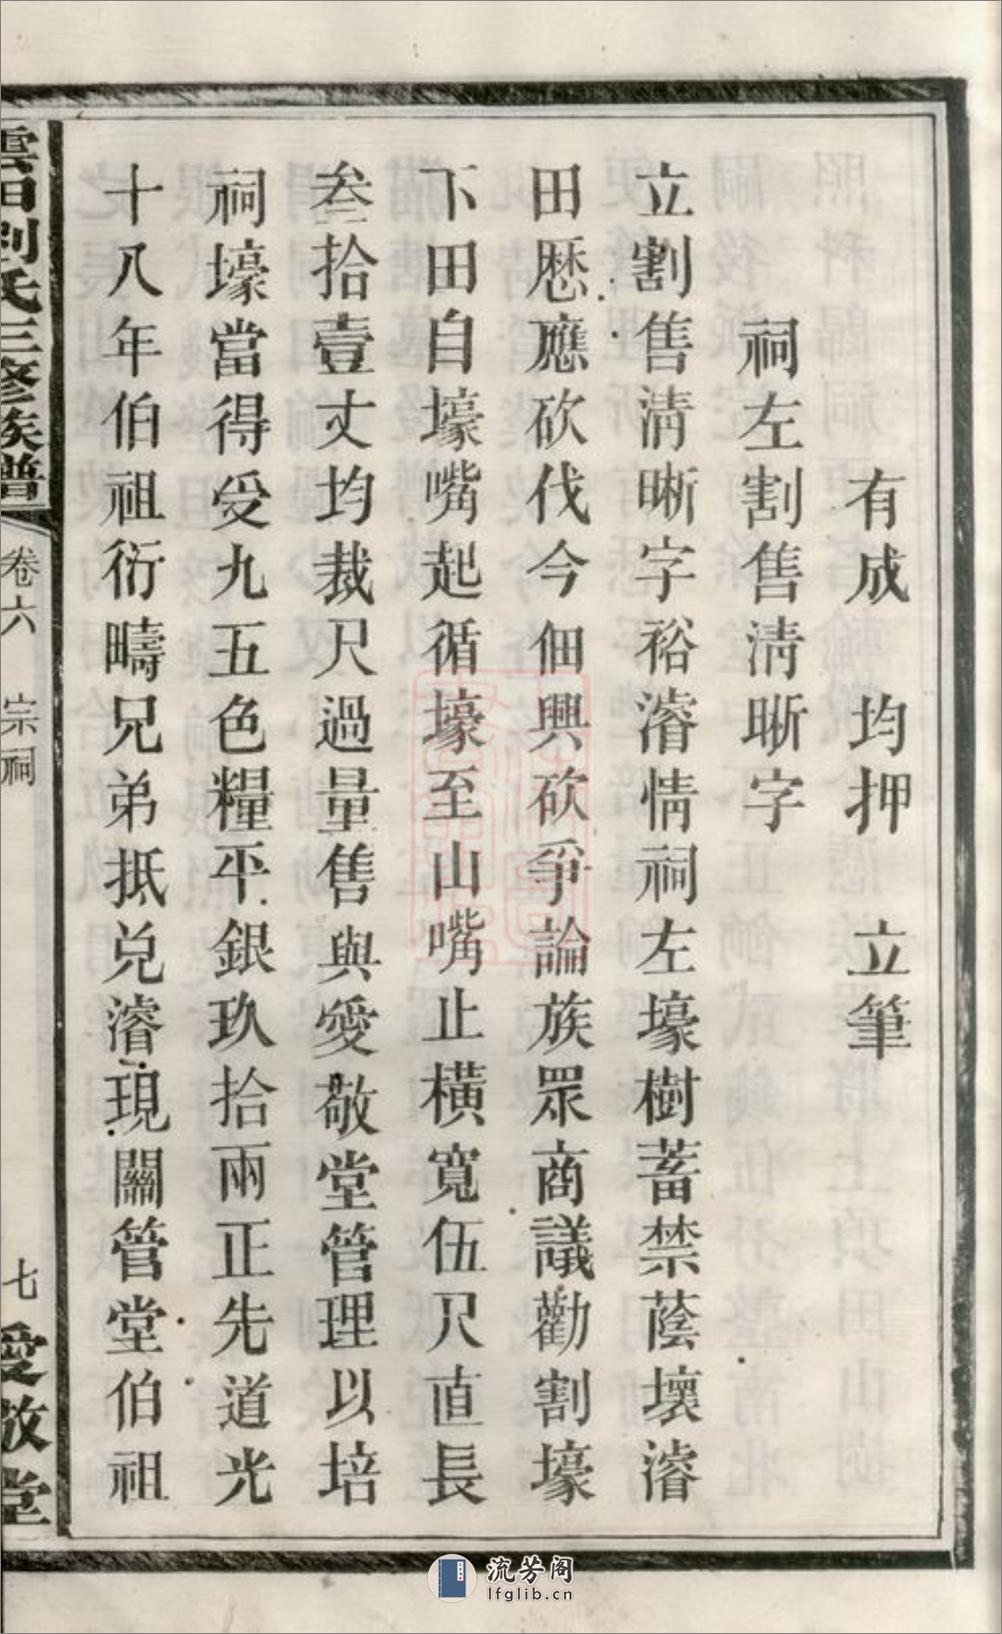 有成 均押 立筆
祠左割售淸晰字
立割售淸晰字裕濬情祠左壕樹蓄禁蔭壞濬
田歷應砍伐今佃興砍爭論族眾商議勸割壕
下田自壕嘴起循壕至山嘴止橫寬伍尺直長
叁拾壹丈均裁尺過量售與愛敬堂管理以培
祠壕當得受九五色糧平銀玖拾兩正先道光
十八年伯祖衍疇兄弟抵兌濬現關管堂伯祖
雲田劉氏三修族譜 卷六 宗祠 七 愛敬堂
流芳阁
lfglib.cn